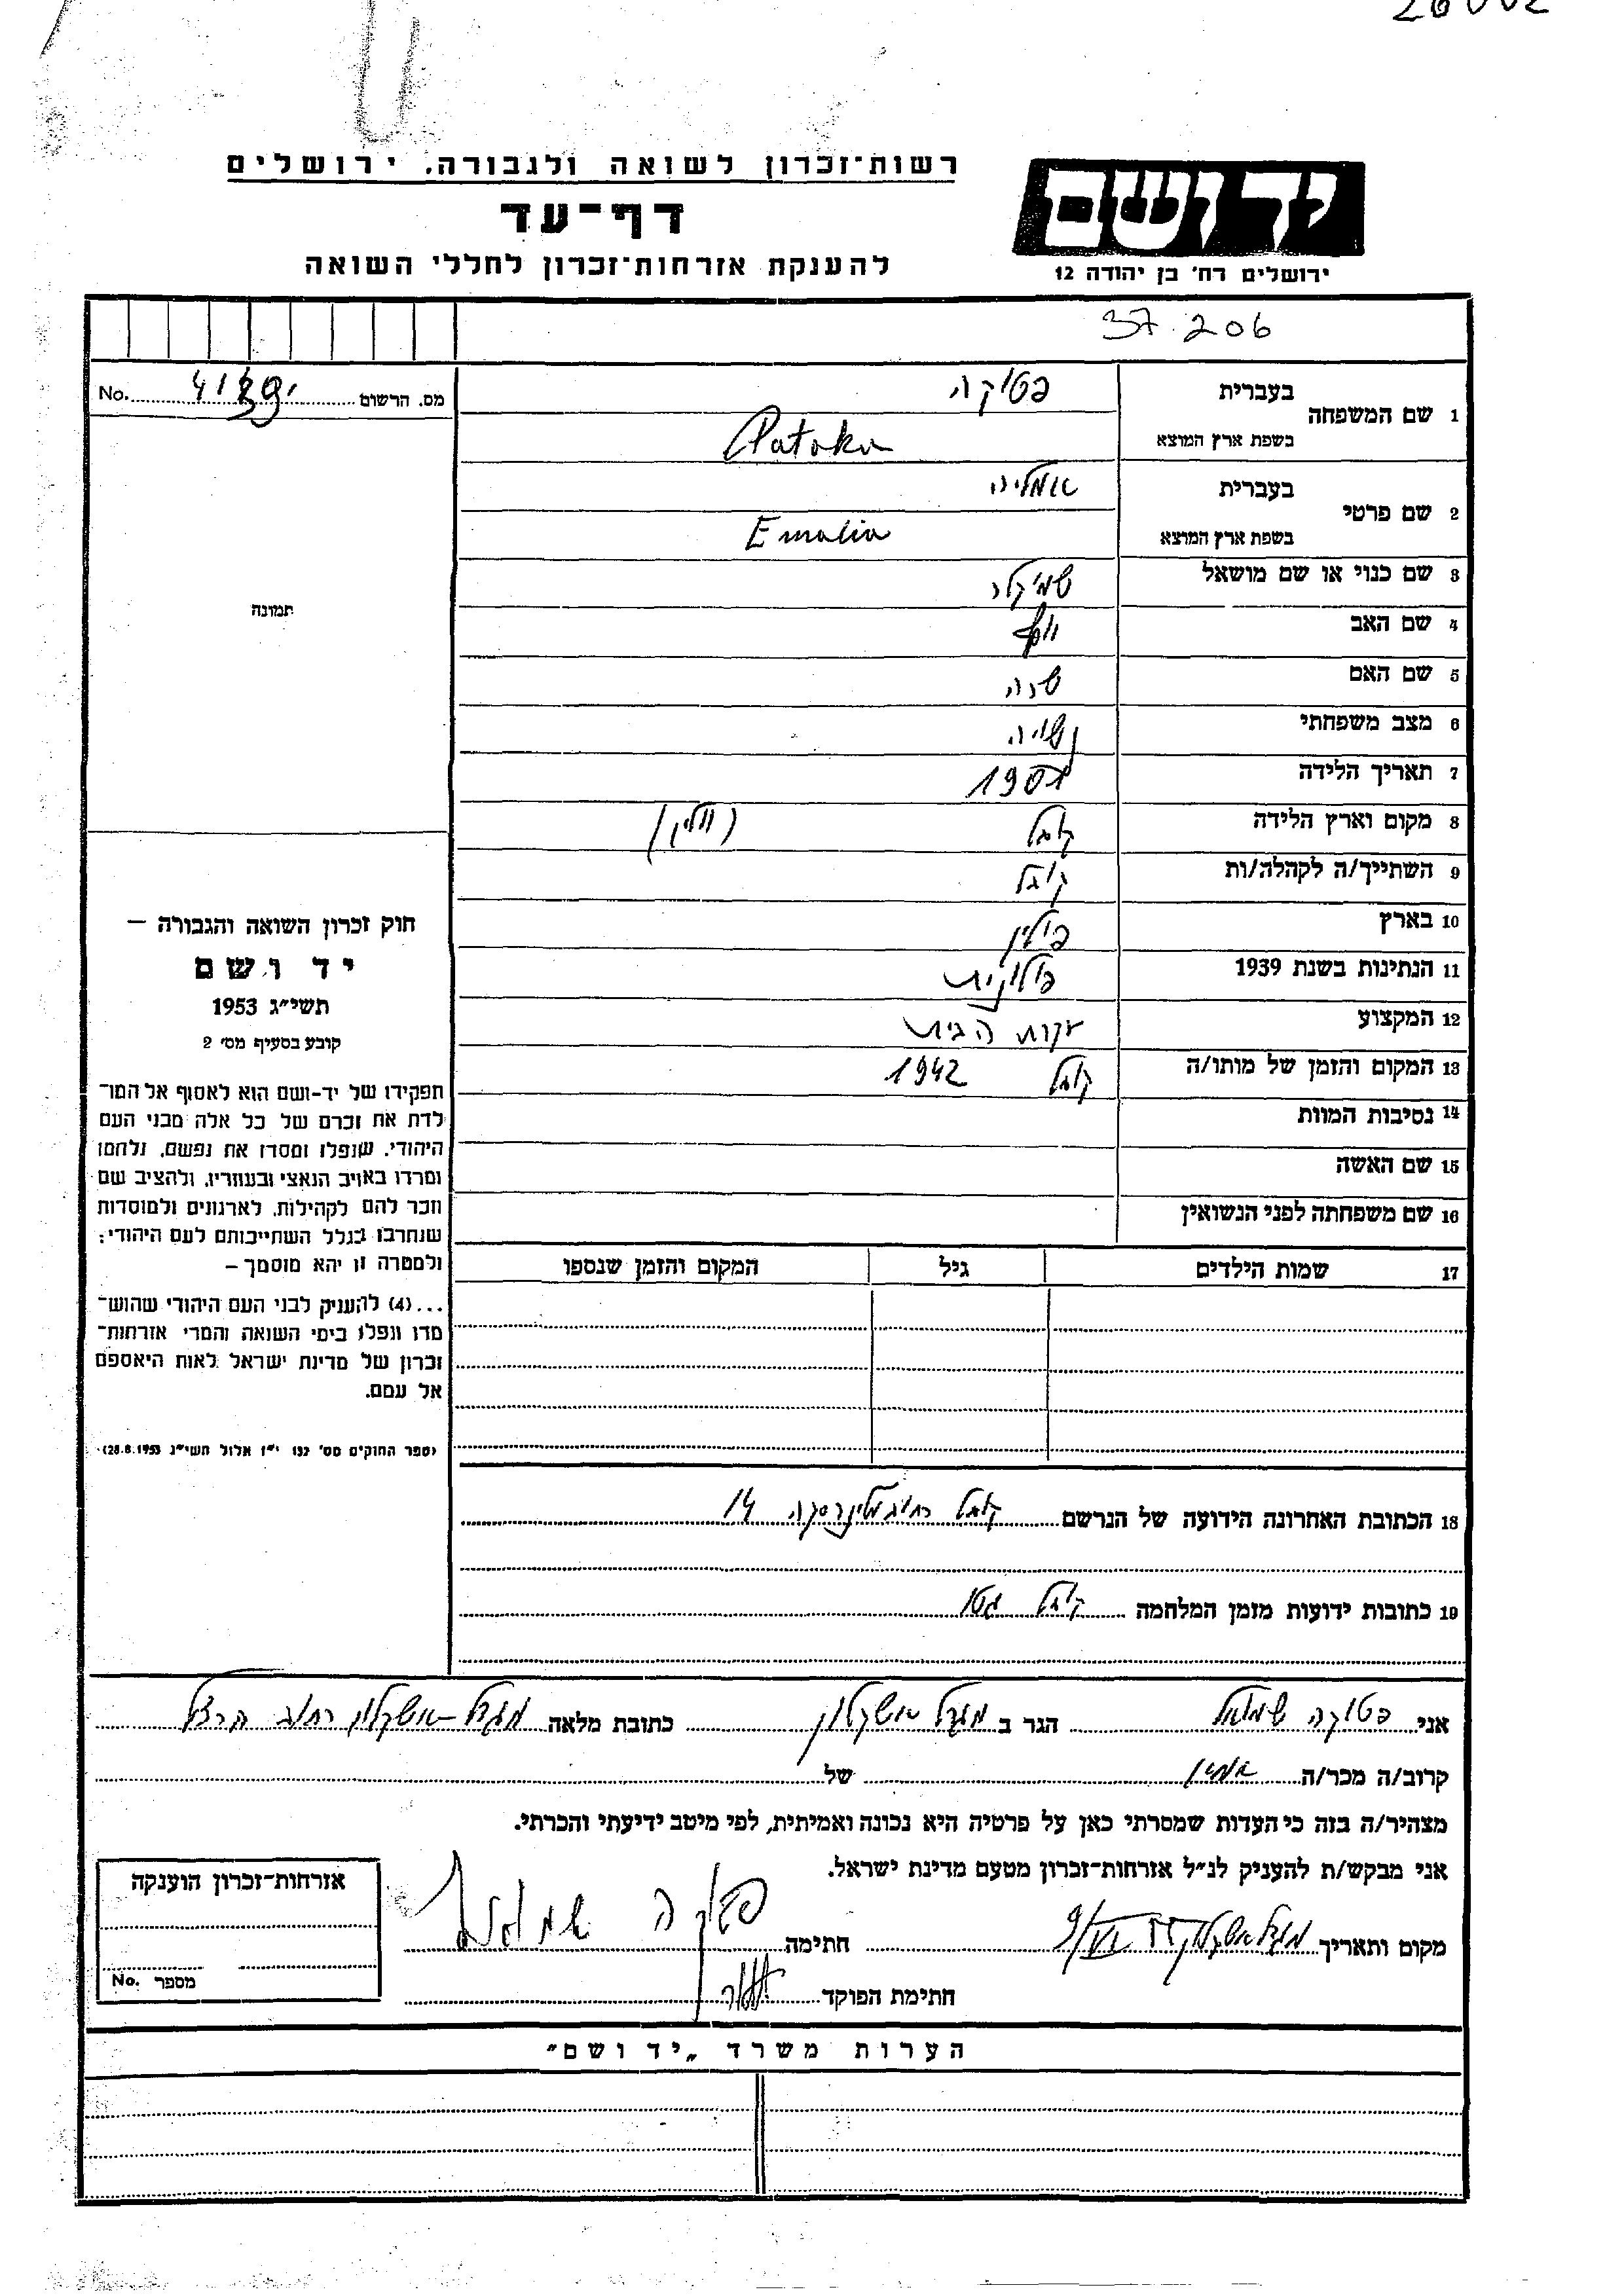 רשות־זכרון לשואה ולגבורה, ירושלים
דף־עד
להענקת אזרחות־זכרון לחללי השואה
יד ושם
ירושלים רח' בן יהודה 12
37.206
No. מס. הרשום
1 שם המשפחה בעברית פטוקה
בשפת ארץ המוצא Patoka
2 שם פרטי בעברית אמליה
בשפת ארץ המוצא Emalia
3 שם כנוי או שם מושאל
4 שם האב יוסף
5 שם האם שרה
6 מצב משפחתי נשויה
7 תאריך הלידה
8 מקום וארץ הלידה קובל (ווהלין)
9 השתייך/ה לקהלה/ות קובל
10 בארץ פולין
11 הנתינות בשנת 1939 פולנית
12 המקצוע עקרת הבית
13 המקום והזמן של מותו/ה קובל 1942
14 נסיבות המוות
15 שם האשה
16 שם משפחתה לפני הנשואין
17 שמות הילדים גיל המקום והזמן שנספו
תמונה
חוק זכרון השואה והגבורה —
יד ושם
תשי"ג 1953
קובע בסעיף מס' 2
תפקידו של יד-ושם הוא לאסוף אל המו־
לדת את זכרם של כל אלה מבני העם
היהודי, שנפלו ומסרו את נפשם, נלחמו
ומרדו באויב הנאצי ובעוזריו, ולהציב שם
וזכר להם לקהילות, לארגונים ולמוסדות
שנחרבו בגלל השתייכותם לעם היהודי;
ולמטרה זו יהא מוסמך —
...(4) להעניק לבני העם היהודי שהוש־
מדו ונפלו בימי השואה והמרי אזרחות־
זכרון של מדינת ישראל לאות היאספם
אל עמם.
(ספר החוקים מס' 132 י"ז אלול תשי"ג 28.8.1953)
18 הכתובת האחרונה הידועה של הנרשם קובל רחוב 14
19 כתובות ידועות מזמן המלחמה קובל גטו
אני פטוקה שמואל הגר ב מגדל אשקלון כתובת מלאה מגדל-אשקלון רחוב הרצל
קרוב/ה מכר/ה של
מצהיר/ה בזה כי העדות שמסרתי כאן על פרטיה היא נכונה ואמיתית, לפי מיטב ידיעתי והכרתי.
אני מבקש/ת להעניק לנ"ל אזרחות-זכרון מטעם מדינת ישראל.
מקום ותאריך מגדל אשקלון חתימה פטוקה שמואל
חתימת הפוקד
אזרחות-זכרון הוענקה
No. מספר
הערות משרד „יד ושם"